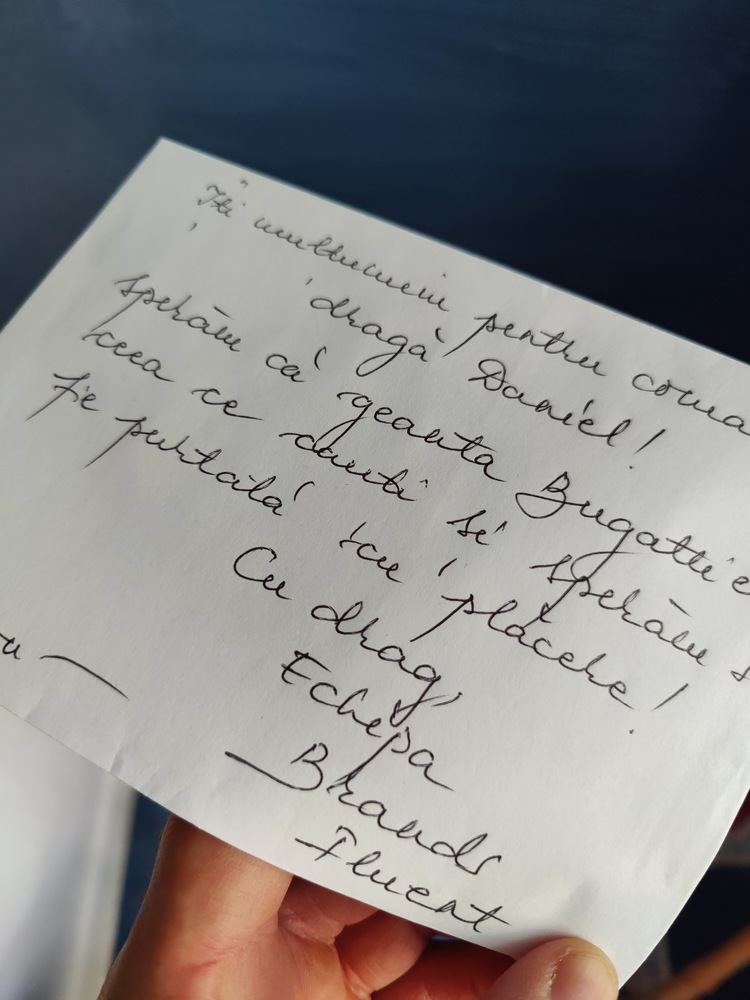 Îți mulțumim pentru coma
dragă Daniel!
Sperăm că geanta Bugatti e
ceea ce cauți și sperăm s
fie purtată cu plăcere!
Cu drag,
Echipa
Brands
Fluent